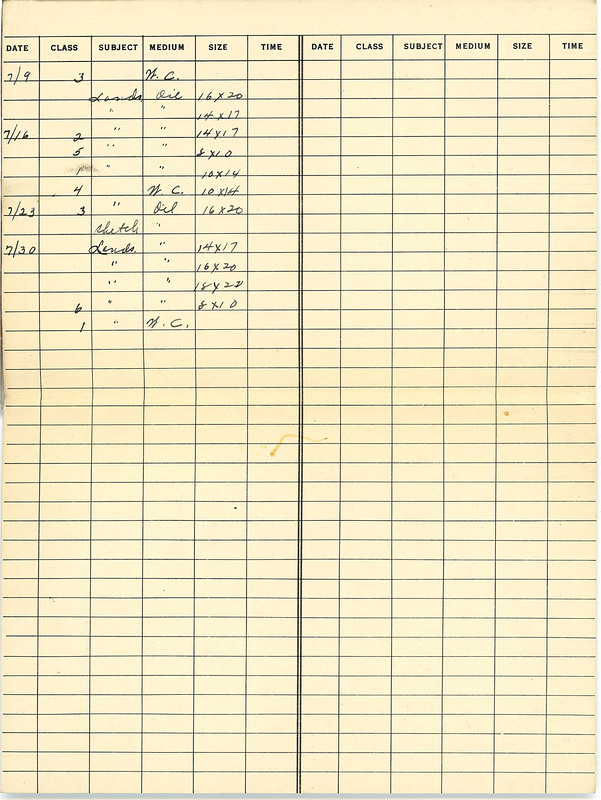 DATE CLASS SUBJECT MEDIUM SIZE TIME DATE CLASS SUBJECT MEDIUM SIZE TIME
7/9 3 W. C.
Lands Oil 16x20
" " 14x17
7/16 2 " " 14x17
5 " " 8x10
" " 10x14
4 W. C. 10x14
7/23 3 " Oil 16x20
Sketch "
7/30 Lands. " 14x17
" " 16x20
" " 18x22
6 " " 8x10
1 " W. C.